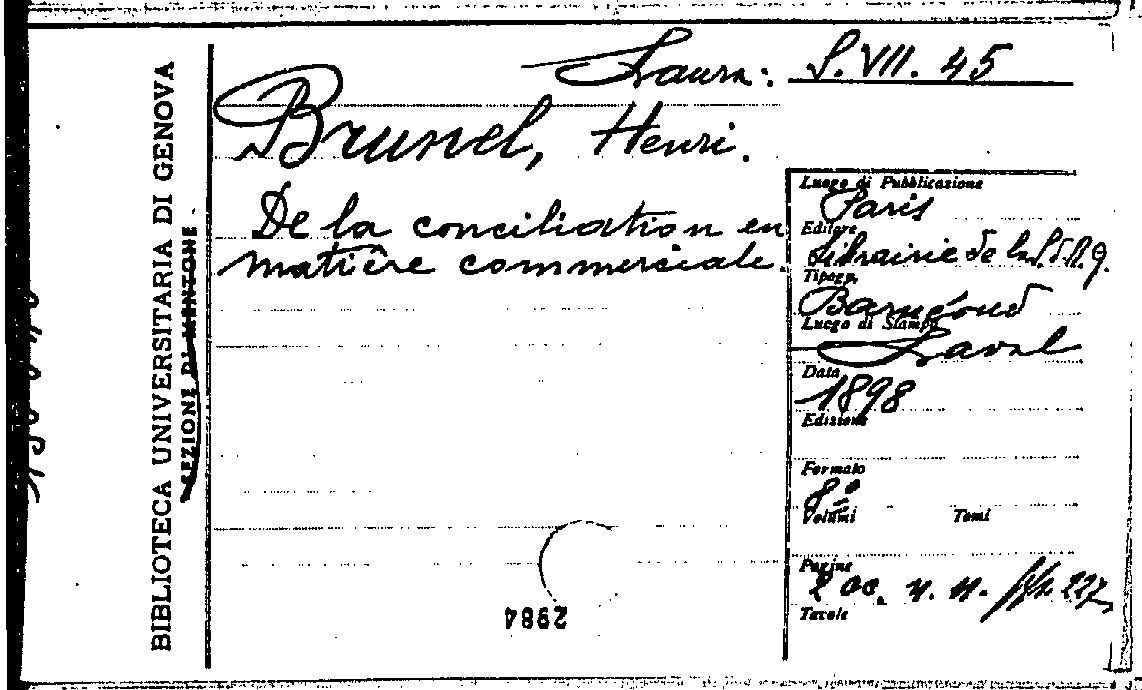 Laura: S.VII.45
Brunel, Henri.
De la conciliation en
matière commerciale.
BIBLIOTECA UNIVERSITARIA DI GENOVA
SEZIONE DI MENTONE
Luogo di Pubblicazione
Paris
Editore
Librairie de la
Tipogr.
Barnéoud
Luogo di Stampa
Laval
Data
1898
Edizione
Formato
8º
Volumi Tomi
Pagine
2 cc. n. n. 227
Tavole
2984